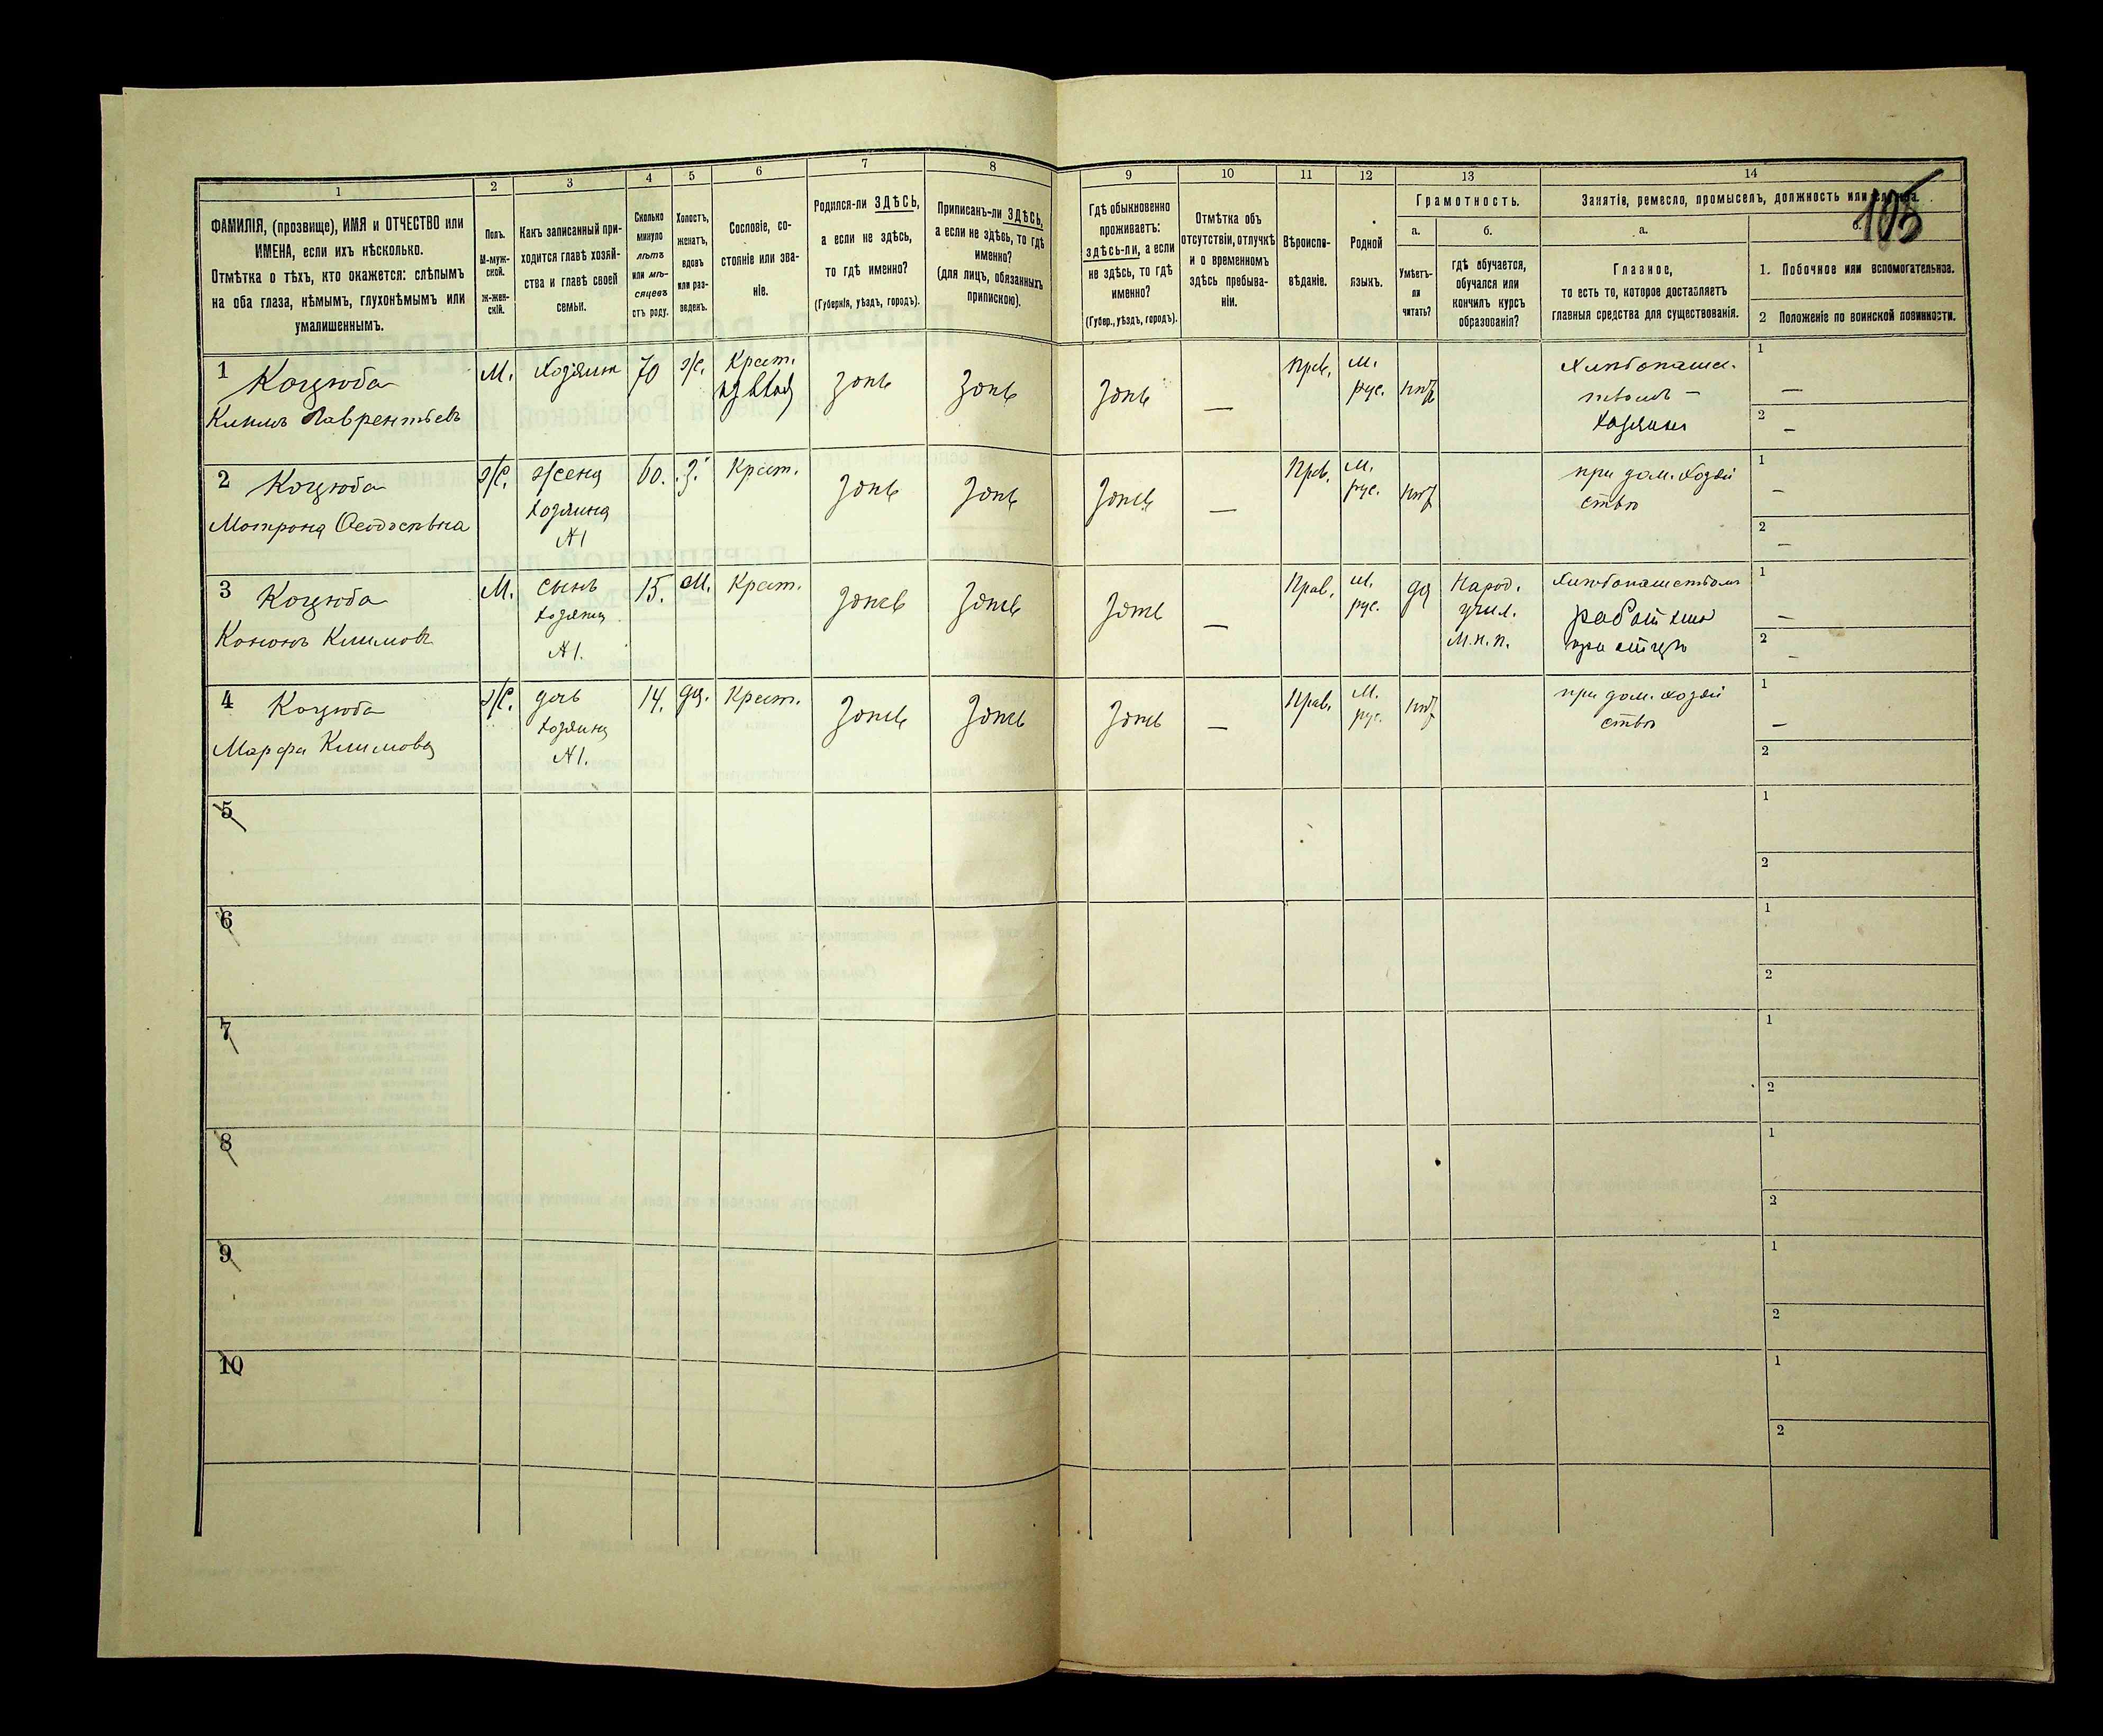 105
1
2
3
4
5
6
7
8
9
10
11
12
13
14
ФАМИЛІЯ, (прозвище), ИМЯ и ОТЧЕСТВО или
ИМЕНА, если ихъ нѣсколько.
Отмѣтка о тѣхъ, кто окажется: слѣпымъ
на оба глаза, нѣмымъ, глухонѣмымъ или
умалишеннымъ.
Полъ.
М-муж-
ской.
Ж-жен-
скій.
Какъ записанный при-
ходится главѣ хозяй-
ства и главѣ своей
семьи.
Сколько
минуло
лѣтъ
или мѣ-
сяцевъ
отъ роду.
Холостъ,
женатъ,
вдовъ
или раз-
веденъ.
Сословіе, со-
стояніе или зва-
ніе.
Родился-ли ЗДѢСЬ,
а если не здѣсь,
то гдѣ именно?
(Губернія, уѣздъ, городъ).
Приписанъ-ли ЗДѢСЬ,
а если не здѣсь, то гдѣ
именно?
(для лицъ, обязанныхъ
припискою).
Гдѣ обыкновенно
проживаетъ:
здѣсь-ли, а если
не здѣсь, то гдѣ
именно?
(Губер., уѣздъ, городъ).
Отмѣтка объ
отсутствіи, отлучкѣ
и о временномъ
здѣсь пребыва-
ніи.
Вѣроиспо-
вѣданіе.
Родной
языкъ.
Грамотность.
а.
Умѣетъ-
ли
читать?
б.
гдѣ обучается,
обучался или
кончилъ курсъ
образованія?
Занятія, ремесло, промыселъ, должность или служба.
а.
Главное,
то есть то, которое доставляетъ
главныя средства для существованія.
б.
1. Побочное или вспомогательное.
2 Положеніе по воинской повинности.
1 Коцюба
Климъ Лаврентьевъ
М.
Хозяинъ
70
ж.
Крест.
здѣсь
здѣсь
здѣсь
—
Прав.
м.
рус.
нѣтъ
Хлѣбопаше-
ствомъ –
хозяинъ
1
—
2
—
2 Коцюба
Мотрона
Ж.
жена
хозяина
№1
60.
З.
Крест.
здѣсь
здѣсь
здѣсь
—
Прав.
м.
рус.
нѣтъ
при дом. хозяй
ствѣ
1
—
2
—
3 Коцюба
Кононъ Климовъ
М.
сынъ
хозяина
№1.
15.
Крест.
здѣсь
здѣсь
здѣсь
—
Прав.
м.
рус.
да
Народ.
учил.
М.н.п.
Хлѣбопашествомъ
при отцѣ
1
—
2
—
4 Коцюба
Марфа Климова
Ж.
дочь
хозяина
№1.
14.
дѣ.
Крест.
здѣсь
здѣсь
здѣсь
—
Прав.
м.
рус.
нѣтъ
при дом. хозяй
ствѣ
1
—
2
5
1
2
6
1
2
7
1
2
8
1
2
9
1
2
10
1
2